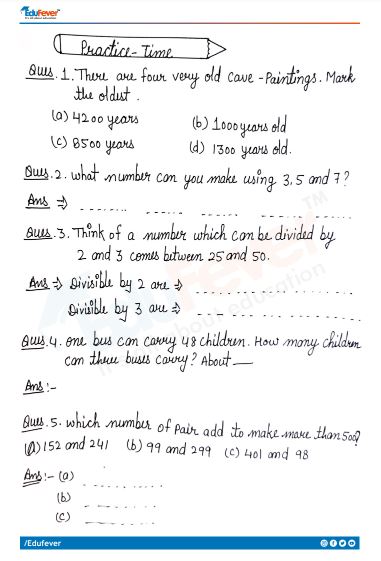 EduFever
It's all about education
Practice-Time
Ques.1. There are four very old cave-Paintings. Mark
the oldest.
(a) 4200 years
(b) 1000 years old
(c) 8500 years
(d) 1300 years old.
Ques.2. What number can you make using 3, 5 and 7?
Ans ⇒
Ques.3. Think of a number which can be divided by
2 and 3 comes between 25 and 50.
Ans ⇒ Divisible by 2 are ⇒
Divisible by 3 are ⇒
Ques.4. One bus can carry 48 children. How many children
can three buses carry? About ___
Ans:-
Ques.5. Which number of pair add to make more than 500?
(a) 152 and 241 (b) 99 and 299 (c) 401 and 98
Ans:- (a)
(b)
(c)
EduFever
TM
It's all about education
/Edufever